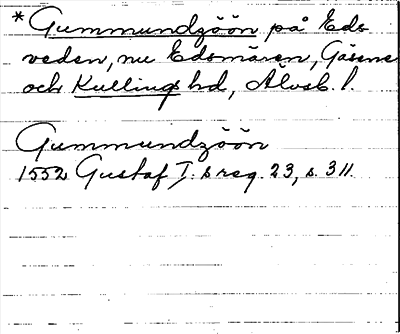 *Gummundzöön på Eds
veden, nu Edsmären, Gäsene
och Kullings hd, Älvsb. l.
Gummundzöön
1552 Gustaf I:s reg. 23, s. 311.